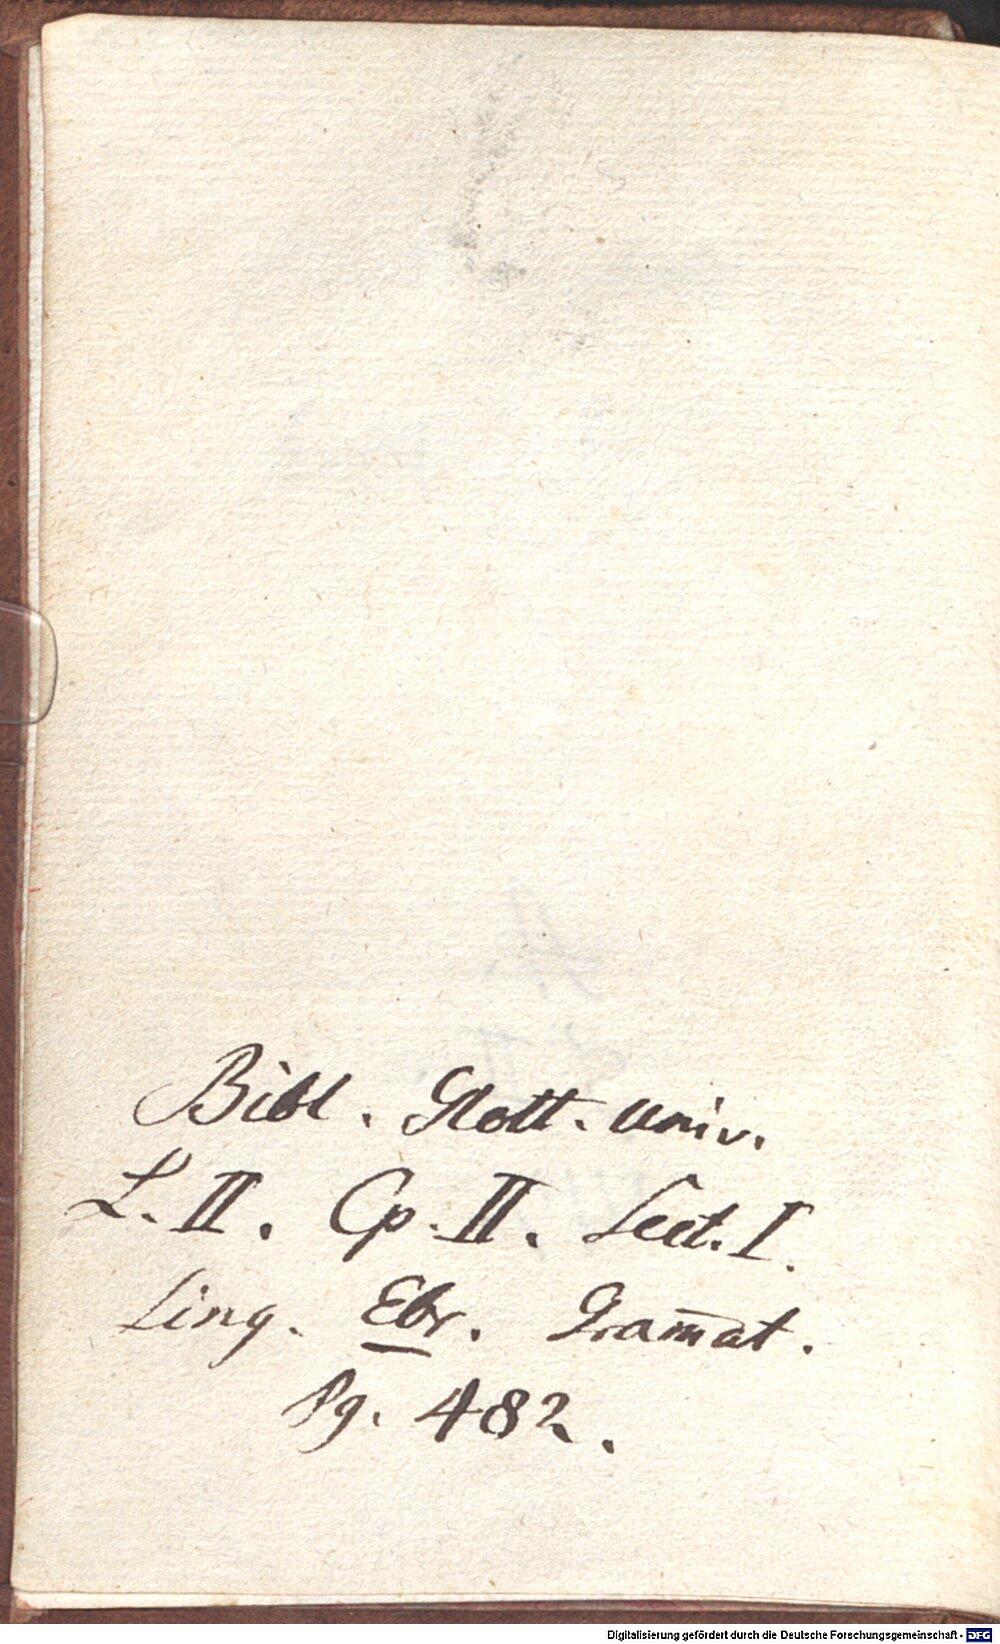 Bibl. Glott. univ.
L. II. Cp. II. Sect. I.
Ling. Ebr. Gram̄at.
Pg. 482.
Digitalisierung gefördert durch die Deutsche Forschungsgemeinschaft - DFG